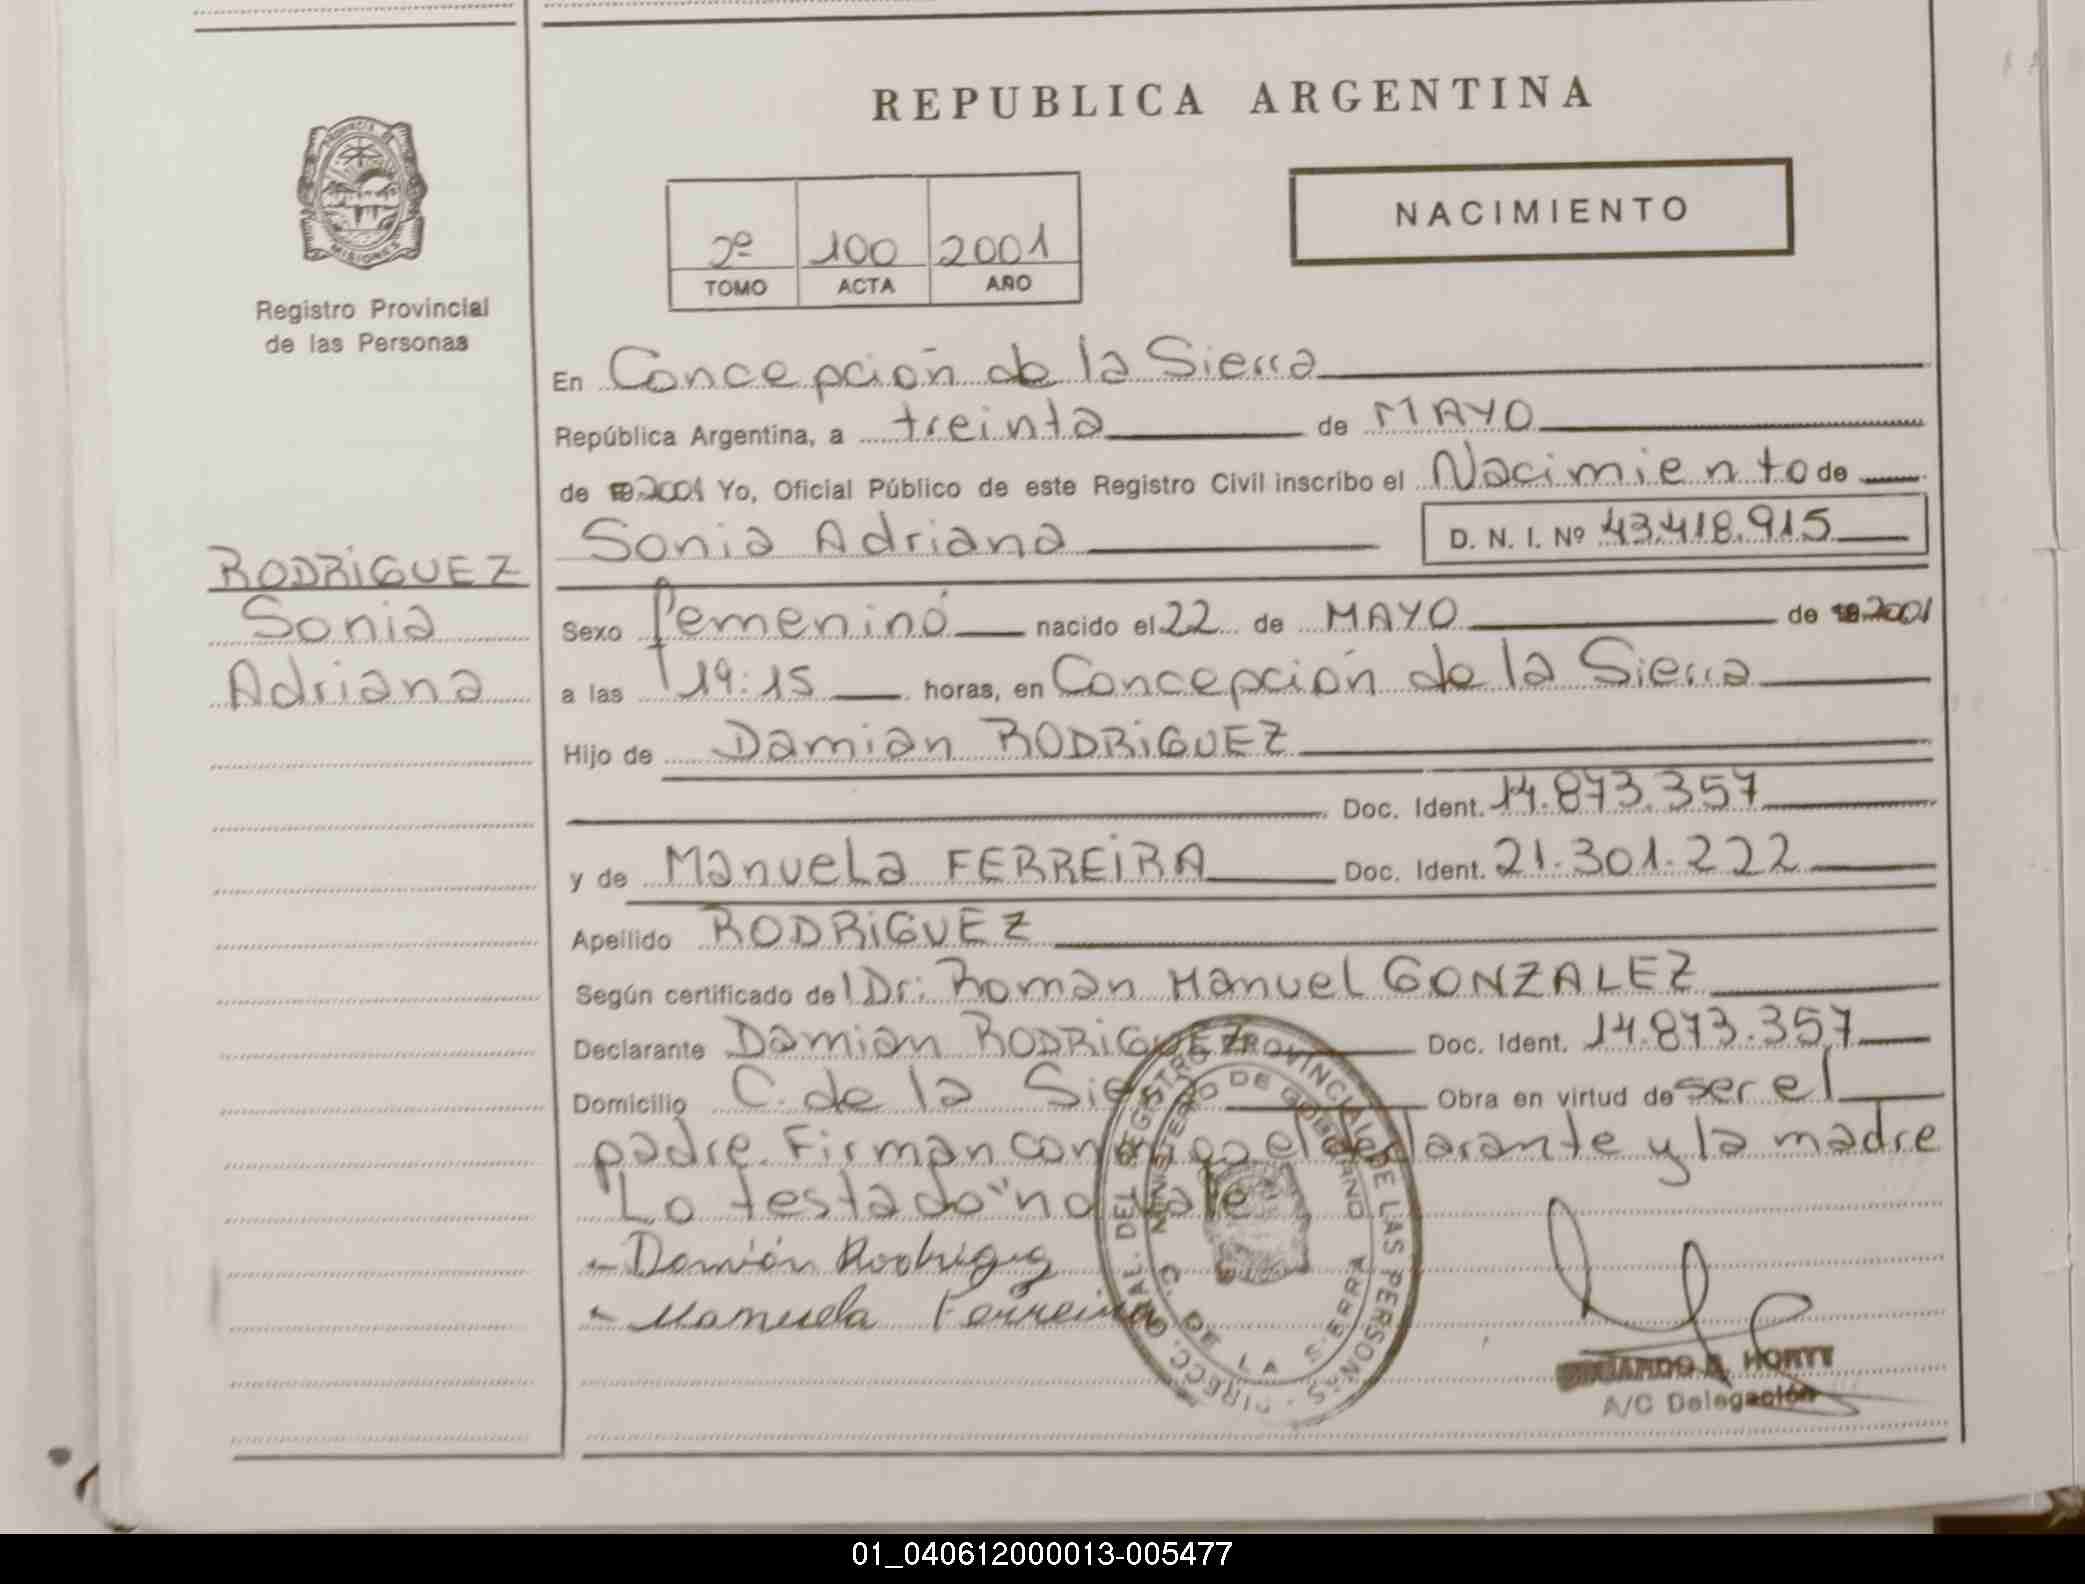 REPUBLICA ARGENTINA
PROVINCIA DE MISIONES
Registro Provincial
de las Personas
NACIMIENTO
2º 100 2001
TOMO ACTA AÑO
En Concepción de la Sierra
República Argentina, a treinta de MAYO
de 2001 Yo, Oficial Público de este Registro Civil inscribo el Nacimiento de
Sonia Adriana D. N. I. Nº 43.418.915
RODRiGUEZ
Sonia
Adriana
Sexo femenino nacido el 22 de MAYO de 2001
a las 19:15 horas, en Concepción de la Sierra
Hijo de Damian RODRiGUEZ
Doc. Ident. 14.873.357
y de Manuela FERREiRA Doc. Ident. 21.301.222
Apellido RODRiGUEZ
Según certificado del Dr: Roman Manuel GONZALEZ
Declarante Damian RODRiGUEZ Doc. Ident. 14.873.357
Domicilio C. de la Sierra Obra en virtud de ser el
padre. Firman conmigo el declarante y la madre
"Lo testado" no vale
- Damián Rodriguez
- Manuela Ferreira
DIRECC. GRAL. DEL REGISTRO PROVINCIAL DE LAS PERSONAS
MINISTERIO DE GOBIERNO
C. DE LA SIERRA
A/C Delegación
01_040612000013-005477